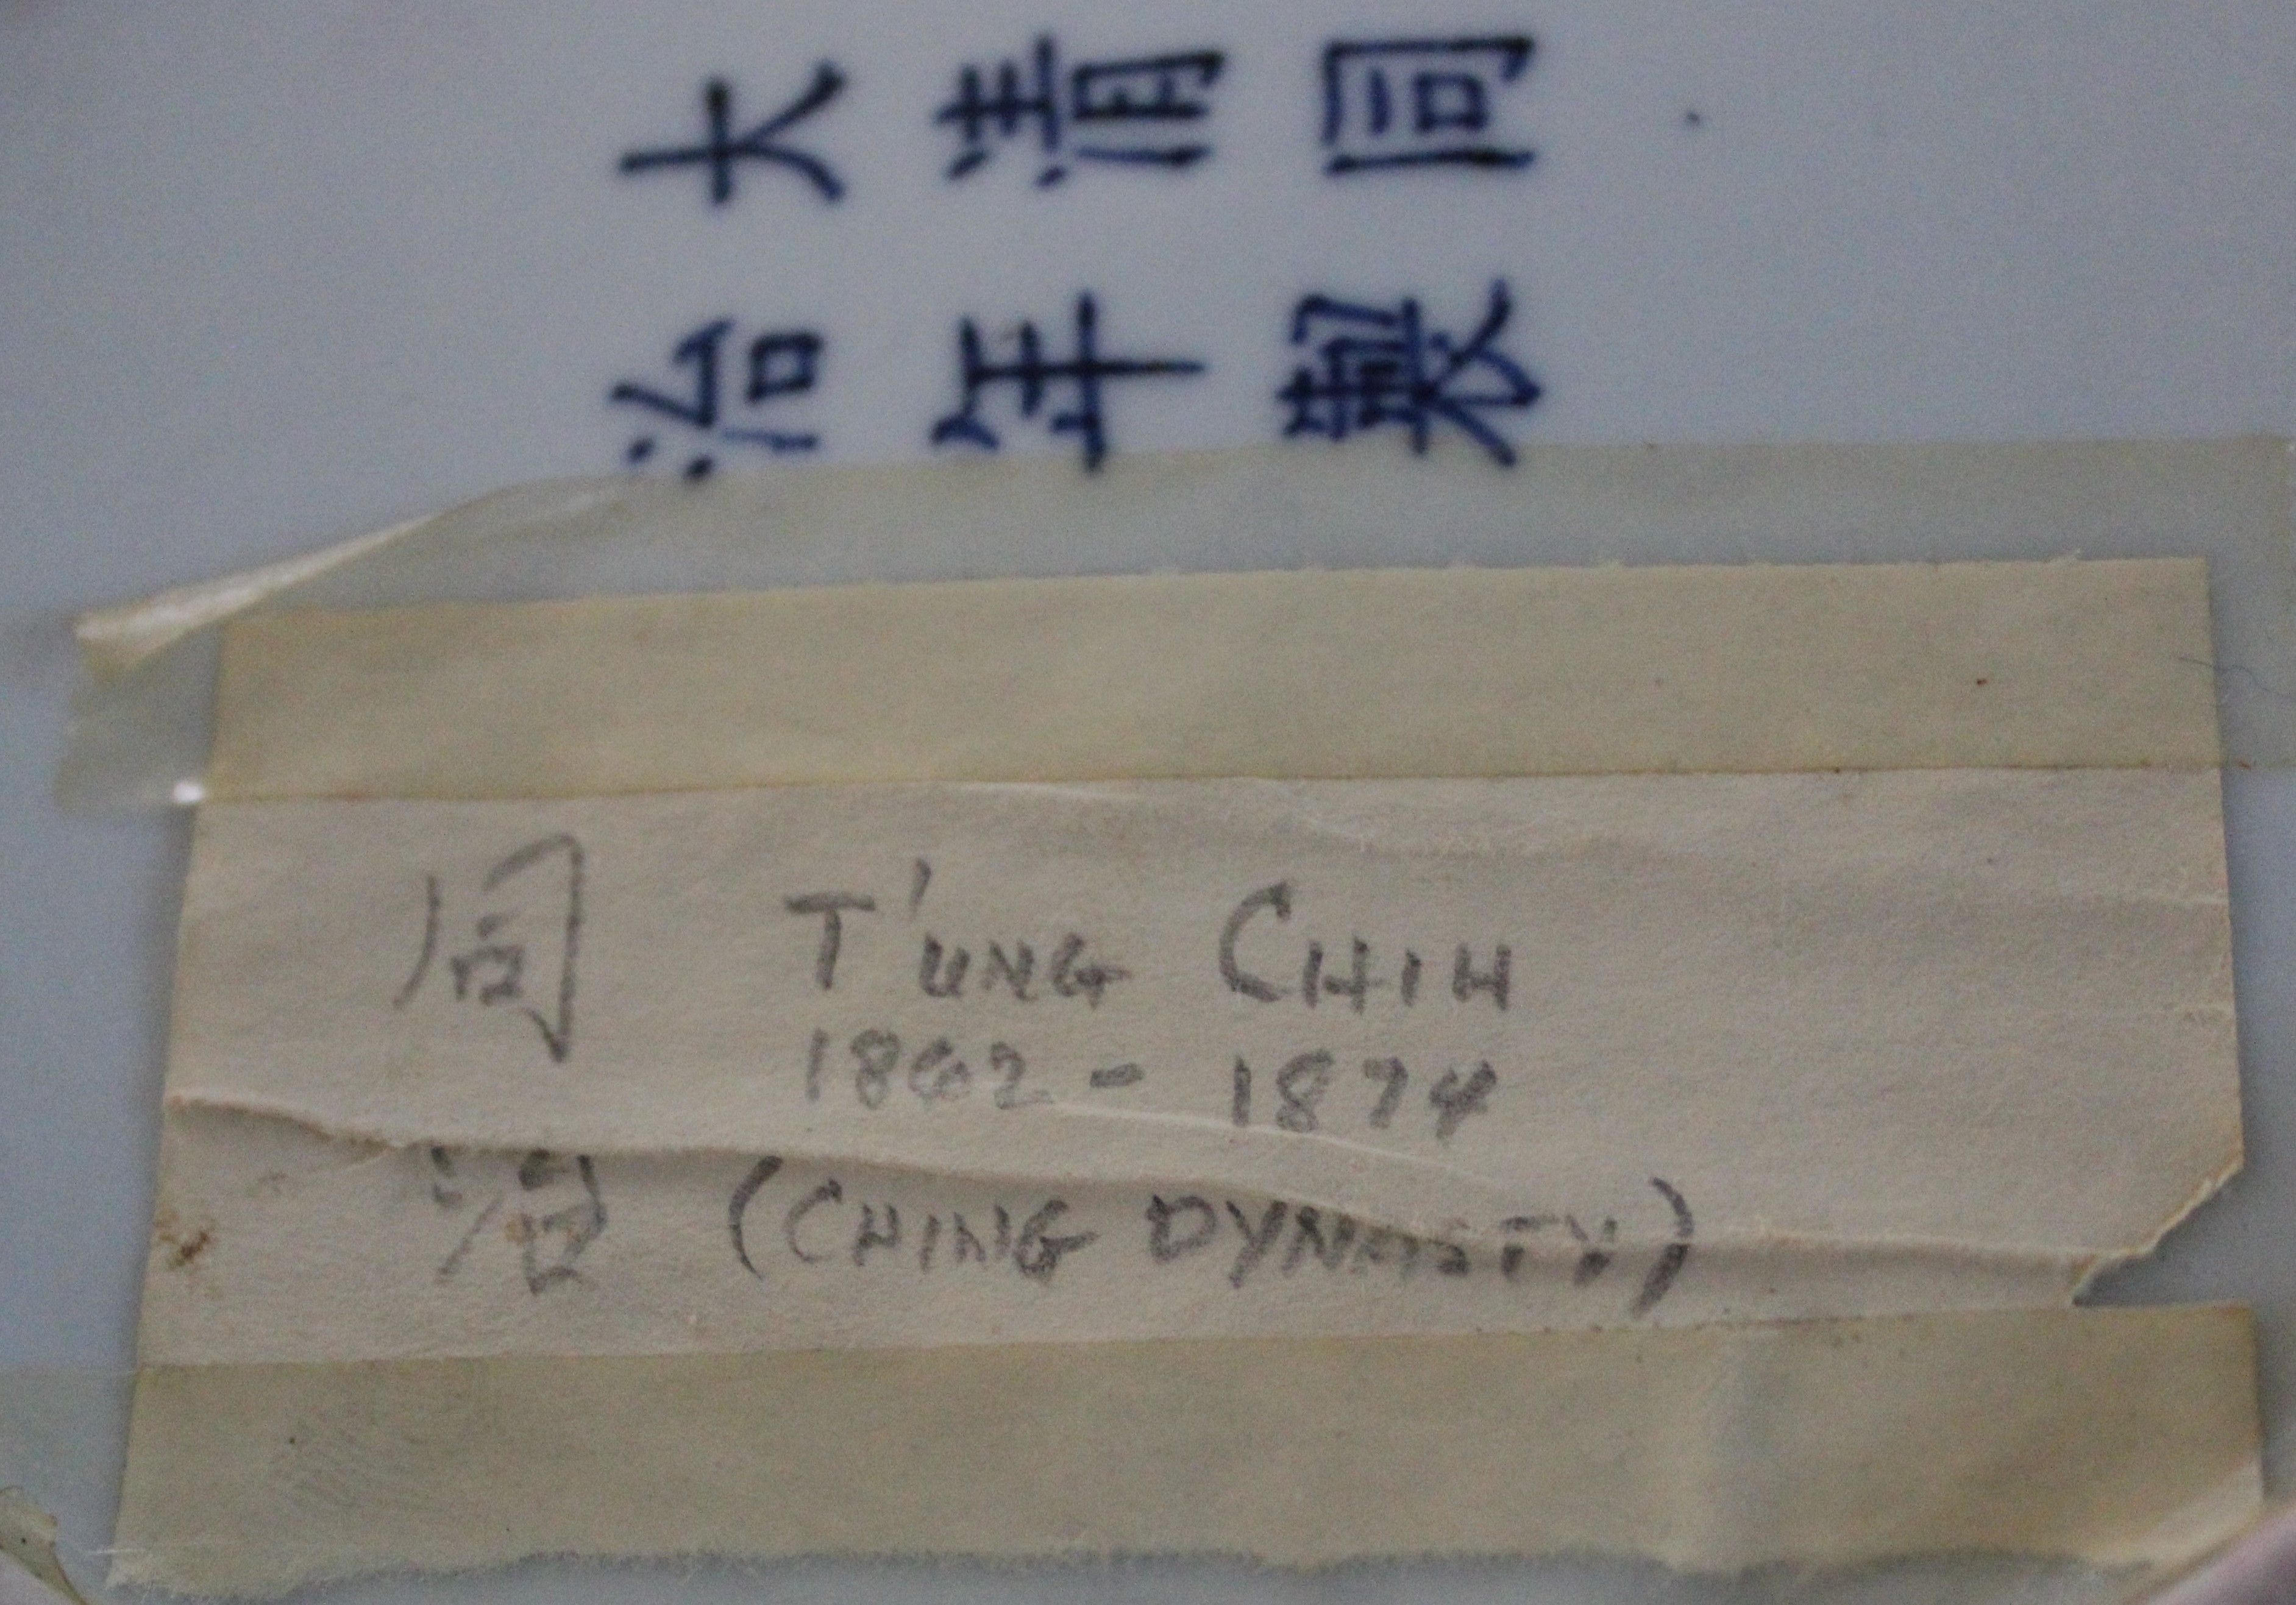 大清同
治年製
同治
T'UNG CHIH
1862 - 1874
(CHING DYNASTY)